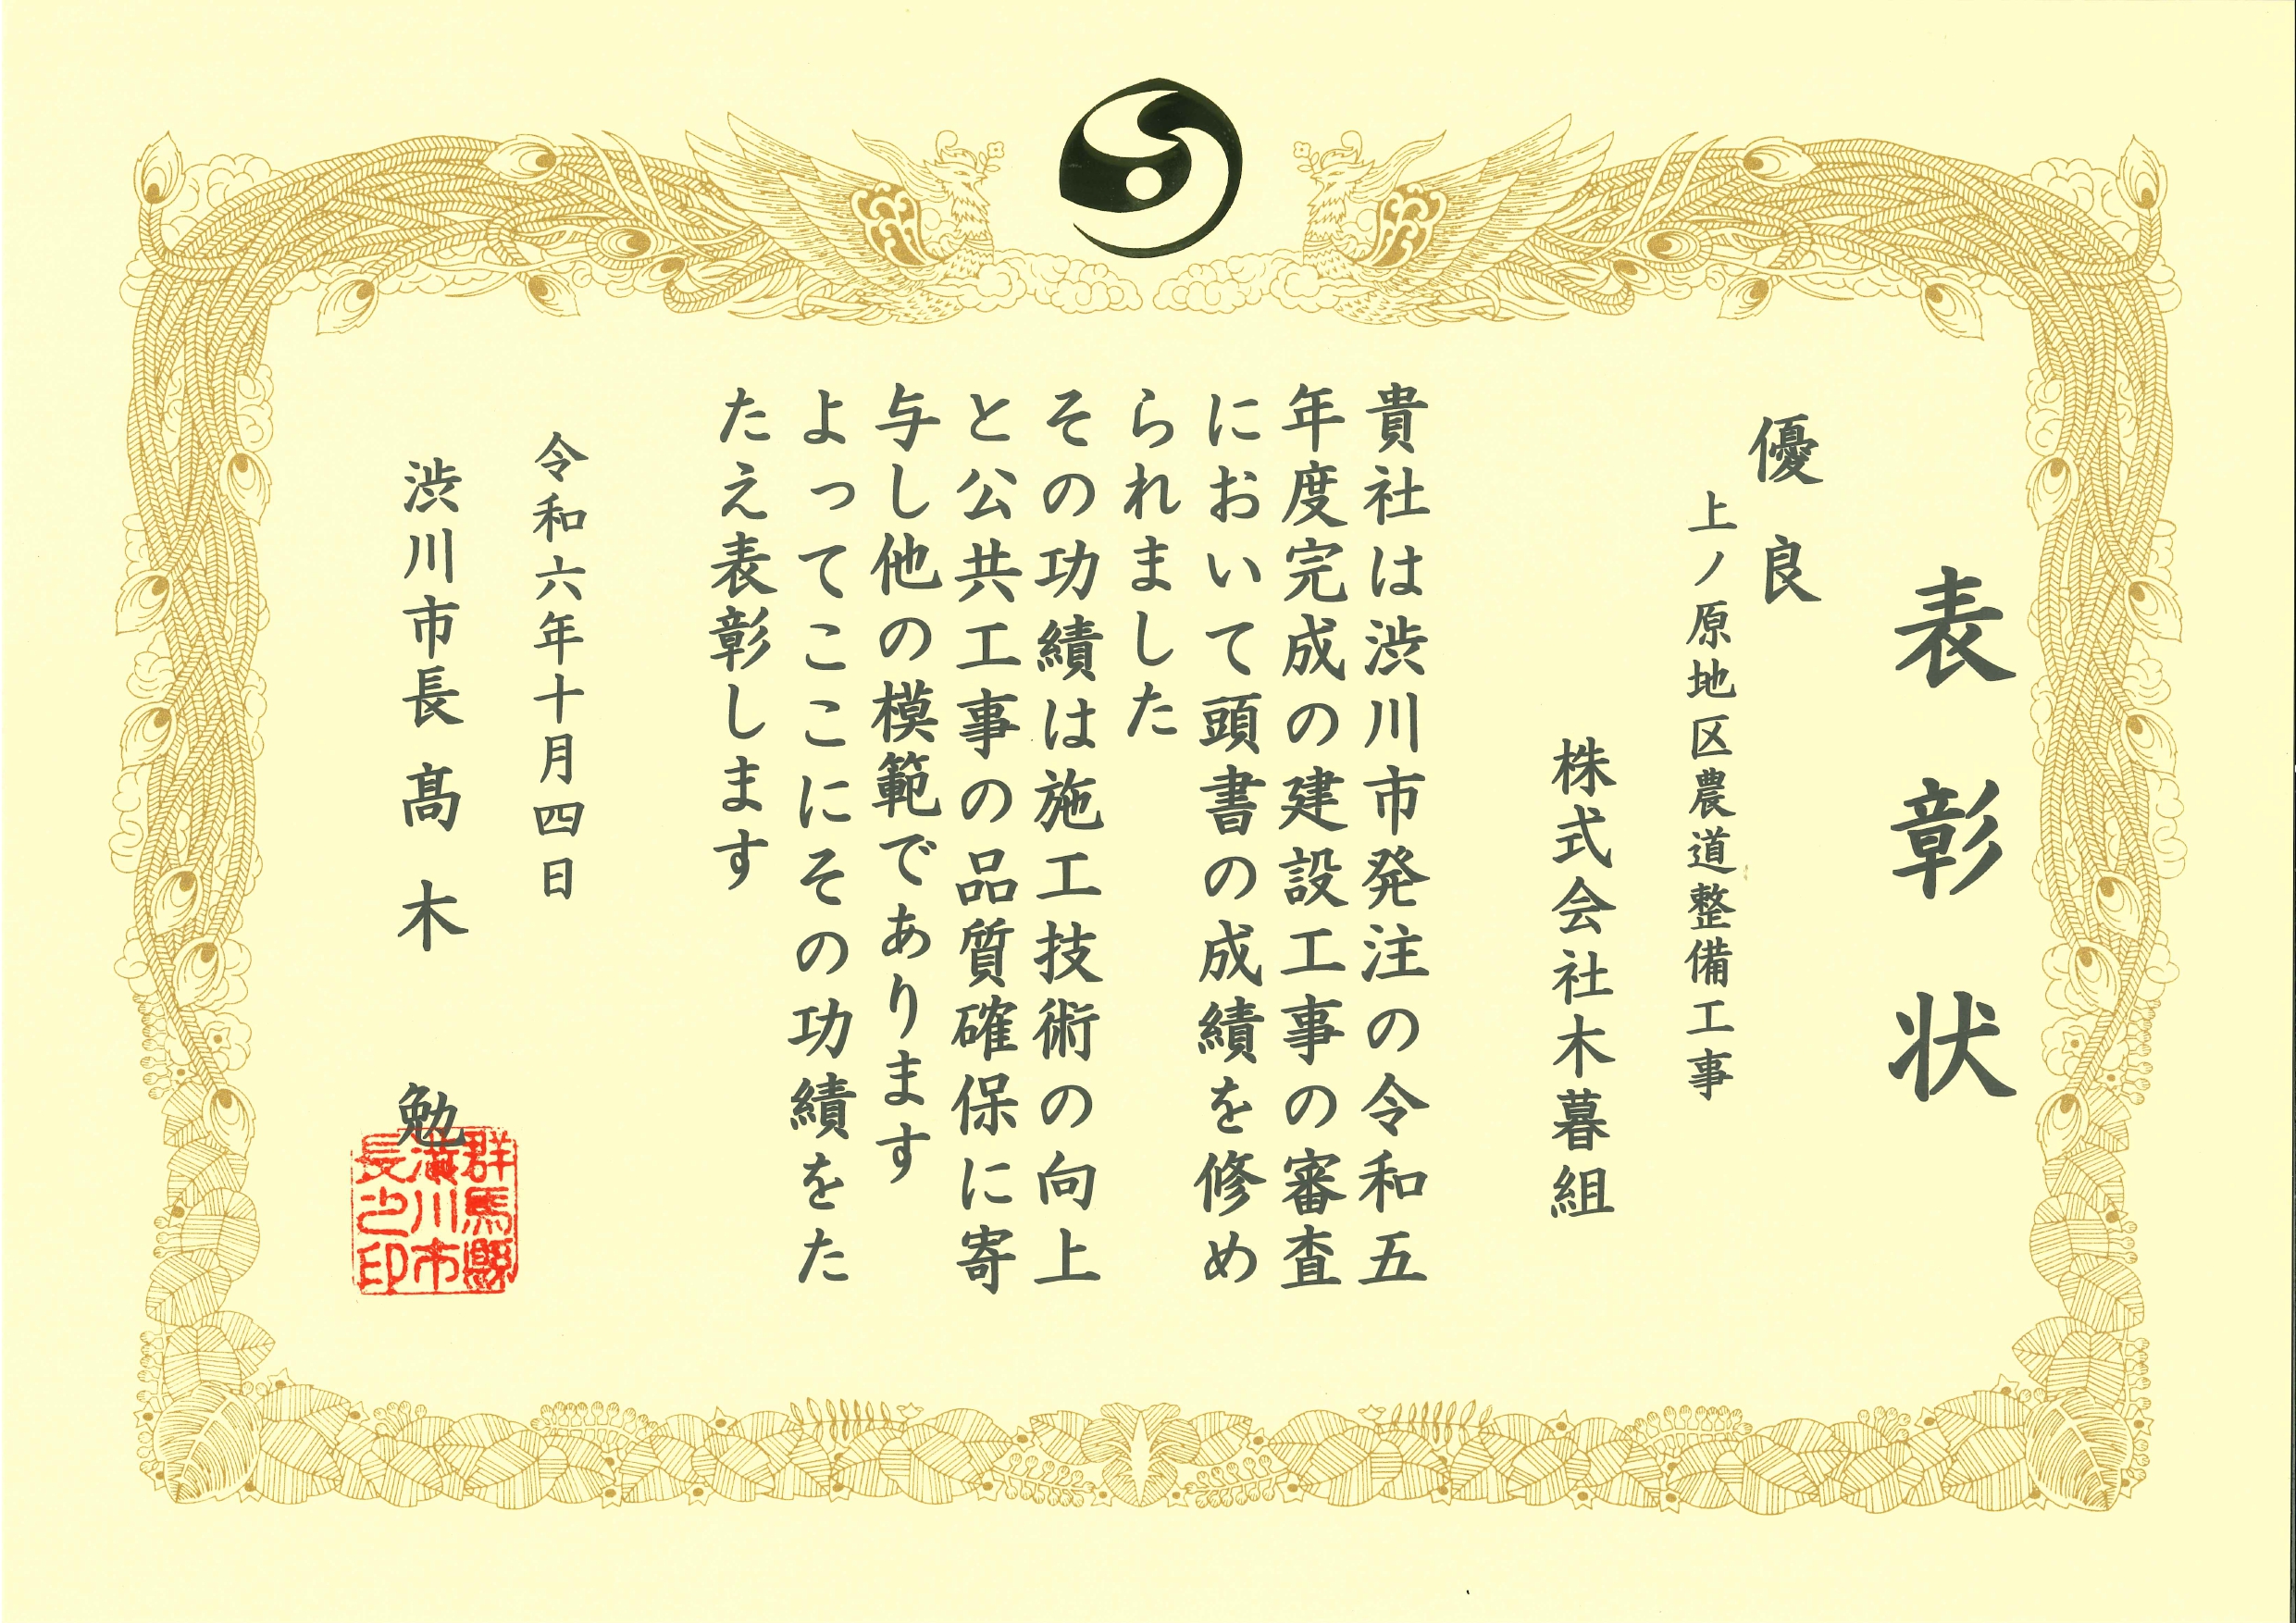 表彰状
優良
上ノ原地区農道整備工事
株式会社木暮組
貴社は渋川市発注の令和五
年度完成の建設工事の審査
において頭書の成績を修め
られました
その功績は施工技術の向上
と公共工事の品質確保に寄
与し他の模範であります
よってここにその功績をた
たえ表彰します
令和六年十月四日
渋川市長 髙木 勉
群馬縣
渋川市
長之印